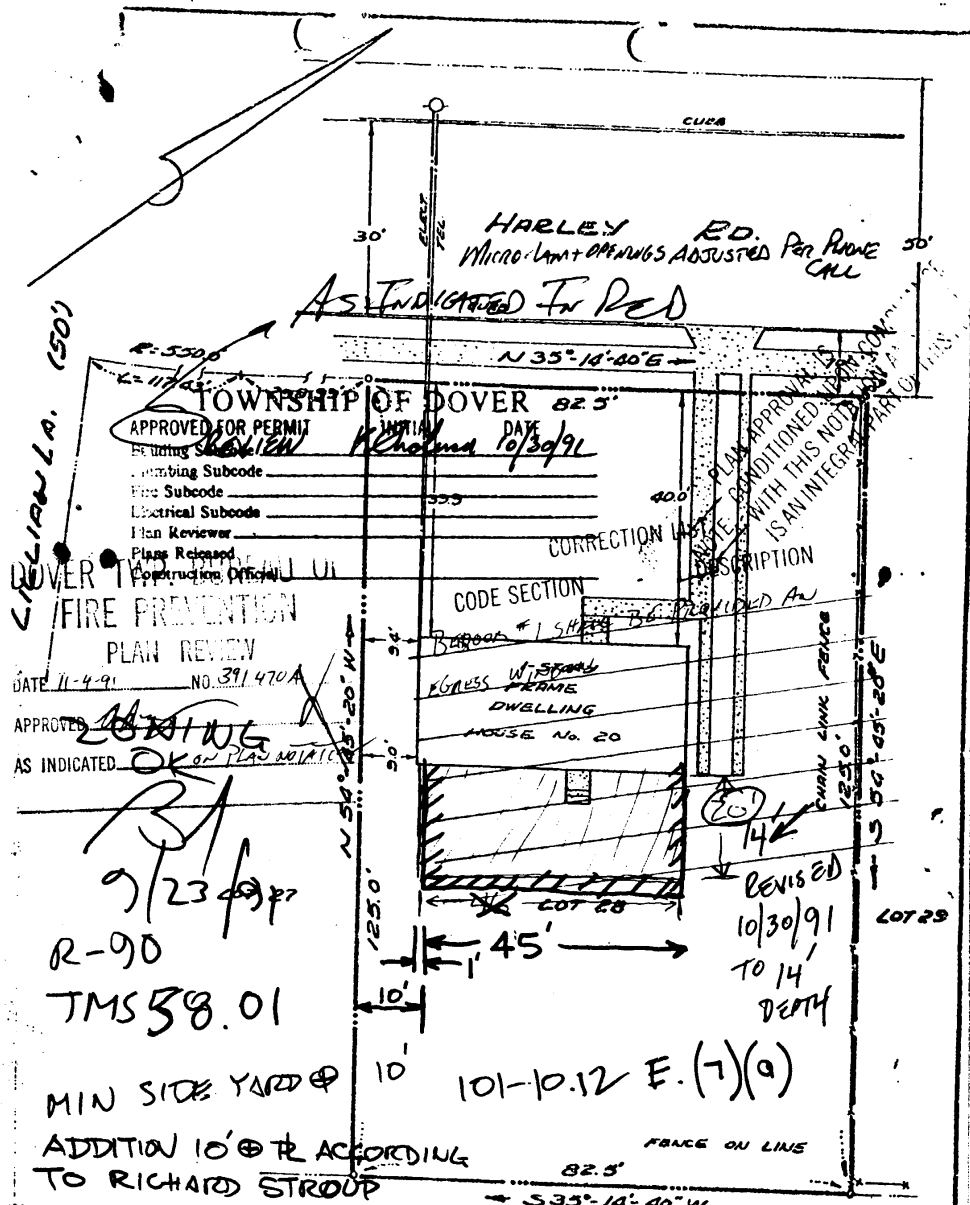 CURB
ELECT
TEL
30'
HARLEY RD.
MICRO-LAM + OPENINGS ADJUSTED PER PHONE
CALL
50'
AS INDICATED IN RED
LILLIAN LA. (50')
R=550.0'
L=117.43'
N 35°-14'-40"E
82.5'
TOWNSHIP OF DOVER
APPROVED FOR PERMIT INITIAL DATE
REVIEW 10/30/91
Building Subcode
Plumbing Subcode
Fire Subcode
Electrical Subcode
Plan Reviewer
Plans Released
Construction Official
39.9
40.0'
PLAN APPROVAL IS
CONDITIONED UPON
NOTE WITH THIS NOTATION
IS AN INTEGRAL PART OF THIS
CORRECTION LIST
CODE SECTION DESCRIPTION
BEDROOM #1 SHALL BE PROVIDED AN
EGRESS
DOVER TWP. BUREAU OF
FIRE PREVENTION
PLAN REVIEW
DATE 11-4-91 NO. 391470A
APPROVED
AS INDICATED ON PLAN
ZONING
OK
9/23
9.4'
9.0'
FRAME
DWELLING
HOUSE No. 20
N 54°-45'-20"W
125.0'
CHAIN LINK FENCE
125.0'
S 54°-45'-20"E
20'
14'
REVISED
10/30/91
TO 14'
DEPTH
LOT 28
LOT 29
45'
1'
10'
R-90
TMS 58.01
MIN SIDE YARD @ 10'
101-10.12 E.(7)(a)
ADDITION 10' @ PL ACCORDING
TO RICHARD STROUP
FENCE ON LINE
82.5'
S 35°-14'-40"W